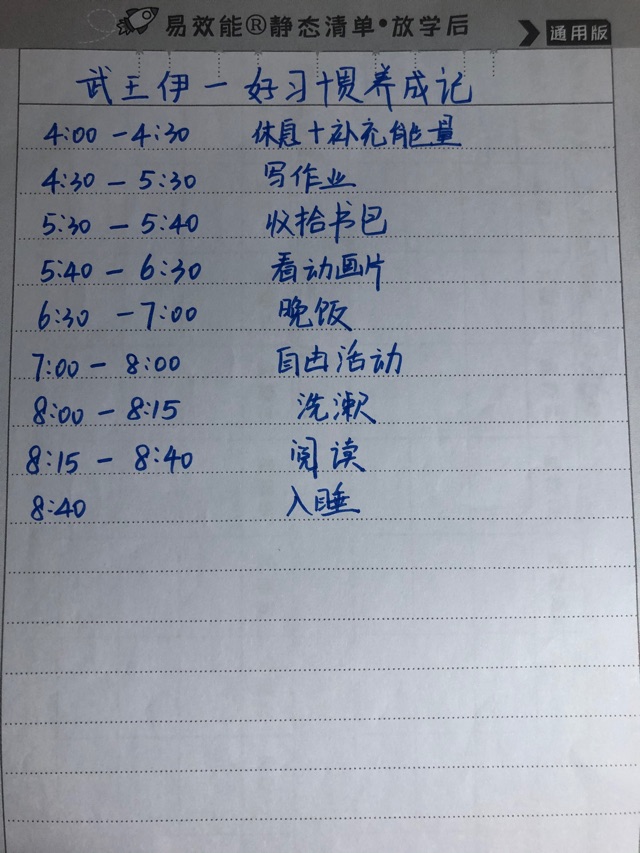 易效能®静态清单•放学后 通用版
武王伊一好习惯养成记
4:00 — 4:30 休息+补充能量
4:30 — 5:30 写作业
5:30 — 5:40 收拾书包
5:40 — 6:30 看动画片
6:30 — 7:00 晚饭
7:00 — 8:00 自由活动
8:00 — 8:15 洗漱
8:15 — 8:40 阅读
8:40 入睡